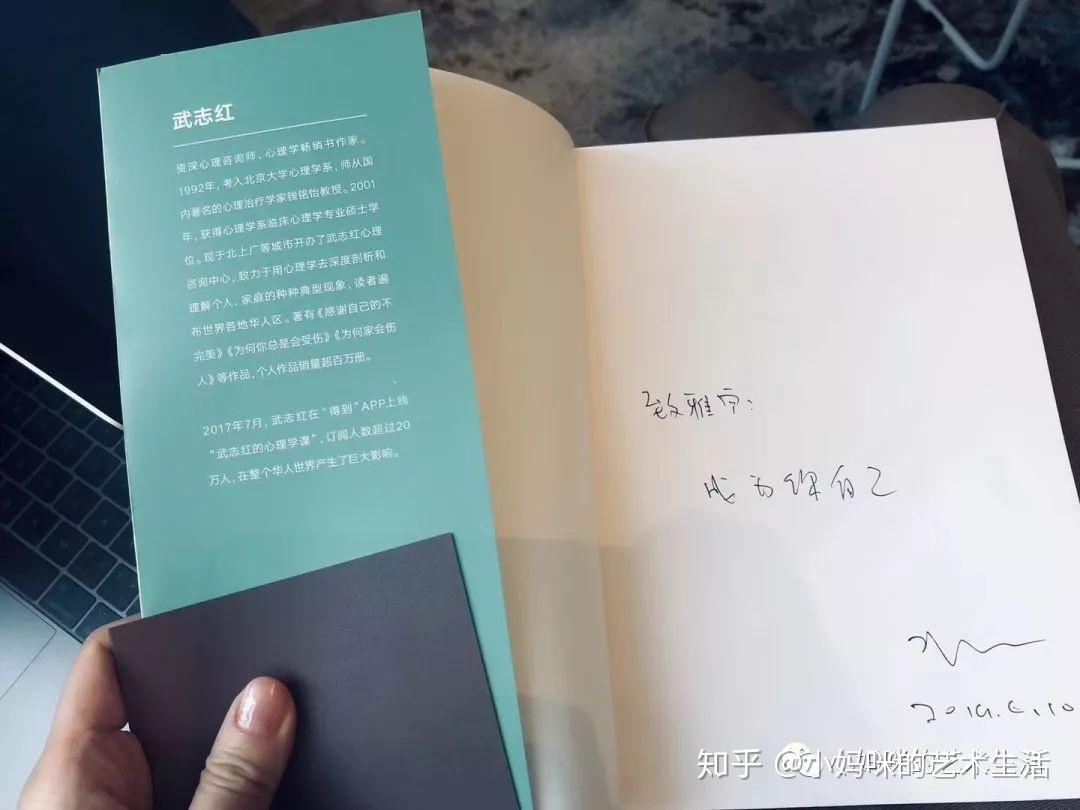 武志红
资深心理咨询师、心理学畅销书作家。
1992年，考入北京大学心理学系，师从国
内著名的心理治疗学家钱铭怡教授。2001
年，获得心理学系临床心理学专业硕士学
位。现于北上广等城市开办了武志红心理
咨询中心，致力于用心理学去深度剖析和
理解个人、家庭的种种典型现象，读者遍
布世界各地华人区。著有《感谢自己的不
完美》《为何你总是会受伤》《为何家会伤
人》等作品，个人作品销量超百万册。
2017年7月，武志红在“得到”APP上线
“武志红的心理学课”，订阅人数超过20
万人，在整个华人世界产生了巨大影响。
致雅宁：
成为你自己
2019.6.10
知乎 @小妈咪的艺术生活